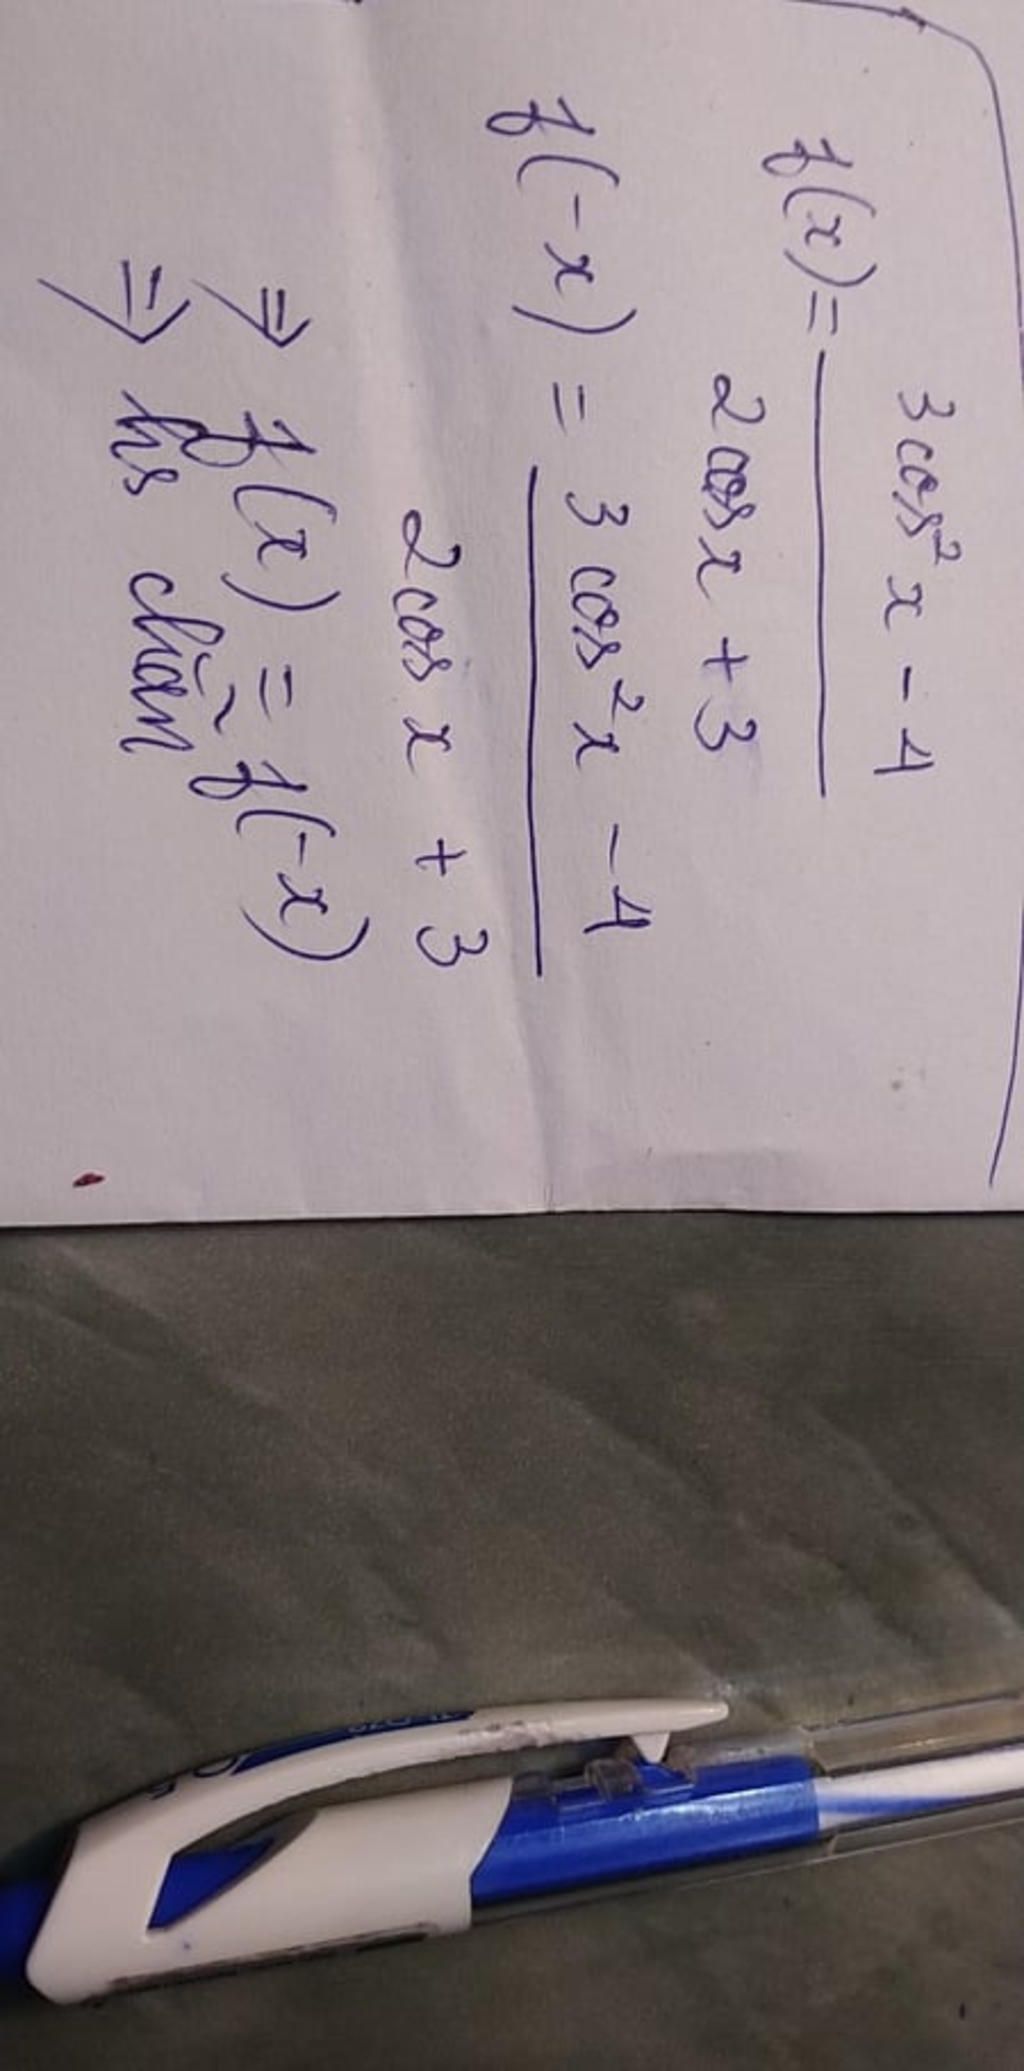 f(x) = 3cos²x - 1
2cosx + 3
f(-x) = 3cos²x - 1
2cosx + 3
⇒ f(x) = f(-x)
⇒ hs chẵn